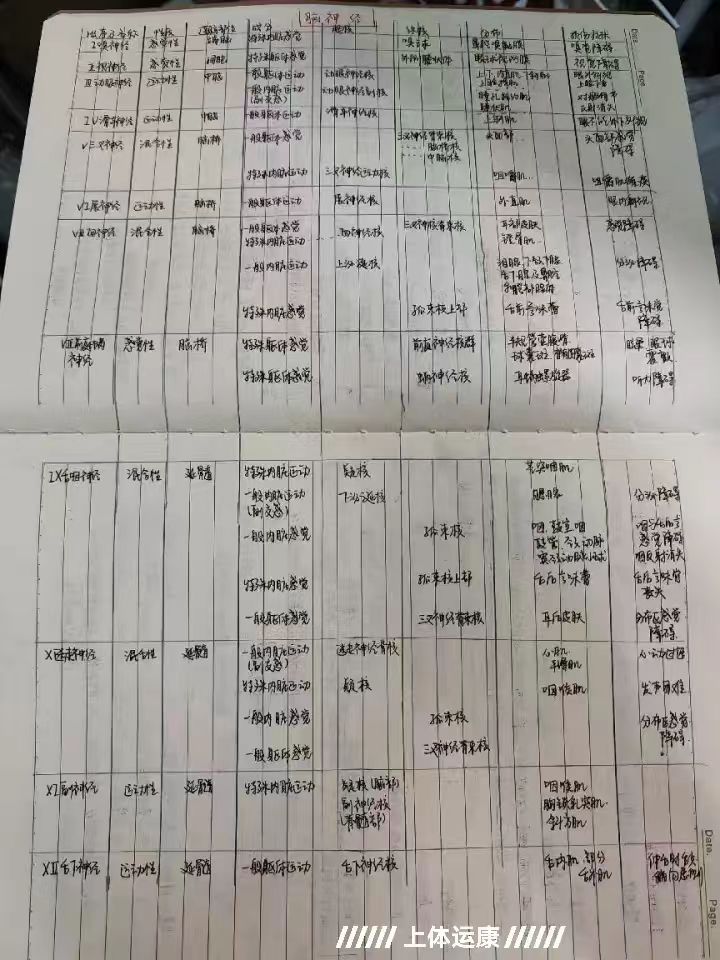 脑神经
顺序及名称 性质 连脑部位 成分 起核 终核 分布 损伤症状
I嗅神经 感觉性 端脑 特殊内脏感觉 嗅球 鼻腔嗅黏膜 嗅觉障碍
II视神经 感觉性 间脑 特殊躯体感觉 外侧膝状体 眼球视网膜 视觉障碍
III动眼神经 运动性 中脑 一般躯体运动 动眼神经核 上、下、内直肌,下斜肌
上睑提肌 眼外斜视
上睑下垂
一般内脏运动
(副交感) 动眼神经副核 瞳孔括约肌
睫状肌 对光调节
反射消失
IV滑车神经 运动性 中脑 一般躯体运动 滑车神经核 上斜肌
V三叉神经 混合性 脑桥 一般躯体感觉 三叉神经脊束核
脑桥核
中脑核 头面部... 头面部感觉
障碍
特殊内脏运动 三叉神经运动核 咀嚼肌... 咀嚼肌瘫痪
VI展神经 运动性 脑桥 一般躯体运动 展神经核 外直肌 眼内斜视
VII面神经 混合性 脑桥 一般躯体感觉 三叉神经脊束核 耳部皮肤 感觉障碍
特殊内脏运动 面神经核 表情肌
一般内脏运动 上泌涎核 泪腺,下颌下腺
舌下腺及鼻腔
和腭部腺体 分泌障碍
特殊内脏感觉 孤束核上部 舌前⅔味蕾 舌前⅔味觉
障碍
VIII前庭蜗
神经 感觉性 脑桥 特殊躯体感觉 前庭神经核群 半规管壶腹嵴
球囊斑 椭圆囊斑 眩晕 眼球
震颤
特殊躯体感觉 蜗神经核 耳蜗螺旋器 听力障碍
IX舌咽神经 混合性 延髓 特殊内脏运动 疑核 茎突咽肌
一般内脏运动
(副交感) 下泌涎核 腮腺 分泌障碍
一般内脏感觉 孤束核 咽、鼓室、咽
鼓管、颈动脉
窦、颈动脉小球 咽与舌后⅓
感觉障碍
咽反射消失
特殊内脏感觉 孤束核上部 舌后⅓味蕾 舌后⅓味觉
丧失
一般躯体感觉 三叉神经脊束核 耳后皮肤 分布区感觉
障碍
X迷走神经 混合性 延髓 一般内脏运动
(副交感) 迷走神经背核 心肌
平滑肌 心动过速
特殊内脏运动 疑核 咽喉肌 发声困难
一般内脏感觉 孤束核 分布区感觉
障碍
一般躯体感觉 三叉神经脊束核
XI副神经 运动性 延髓 特殊内脏运动 疑核(脑部)
副神经核
(脊髓部) 咽喉肌
胸锁乳突肌
斜方肌
XII舌下神经 运动性 延髓 一般躯体运动 舌下神经核 舌内肌 部分
舌外肌 伸舌时舌尖
Date.
Page.
Date.
Page.
上体运康